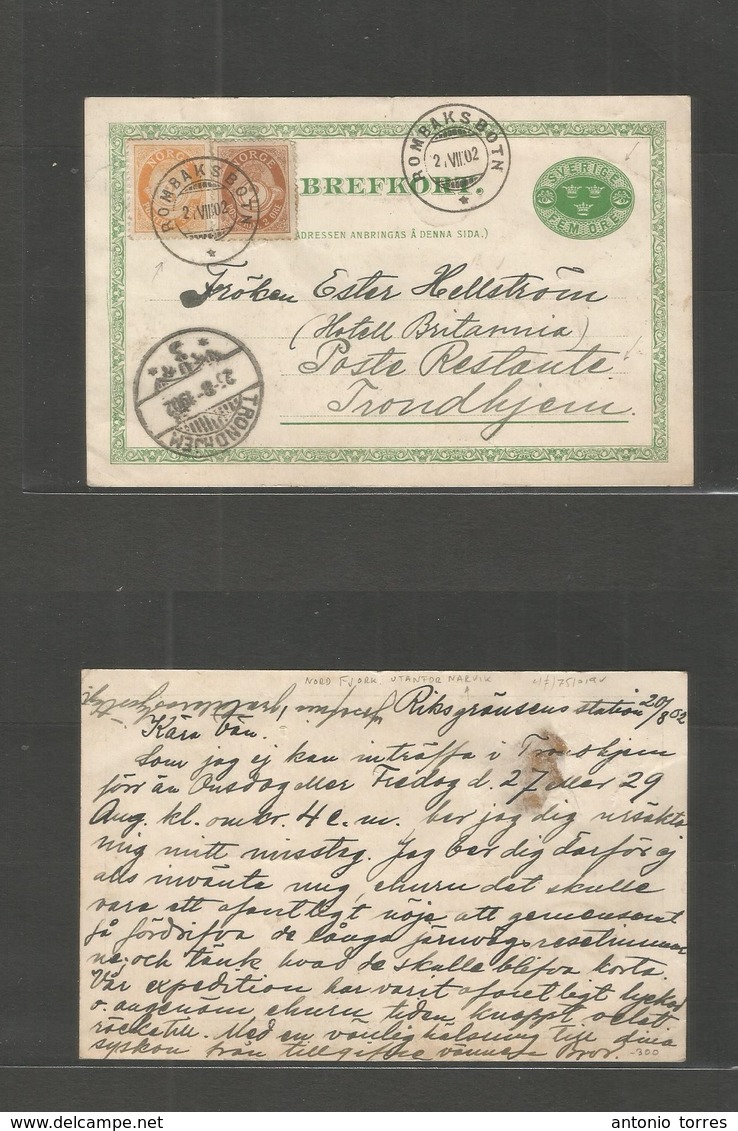 NORGE
NORGE
ROMBAKSBOTN
2.VIII.02
ROMBAKSBOTN
2.VIII.02
BREFKORT.
SVERIGE
FEM ÖRE
(ADRESSEN ANBRINGAS Å DENNA SIDA.)
Fröken Ester Hellström
(Hotell Britannia)
Poste Restante
Trondhjem.
TRONDHJEM
NORD FJORK UTANFOR NARVIK
Riksgränsens station 20/8 02
Kära Vän.
Som jag ej kan inträffa i Trondhjem
förr än Onsdag eller Fredag d. 27 eller 29
Aug. kl. omkr. 4 e.m. ber jag dig ursäkta
mig mitt misstag. Jag ber dig därför ej
alls invänta mig, ehuru det skulle
vara ett ofantligt nöje att gemensamt
få fördrifva de långa järnvägsresetimmar
na, och tänk hvad de skulle blifva korta.
Vår expedition har varit ofantligt lyckad
o. angenäm, ehuru tiden knappt
räckte till. Med en vänlig hälsning till dina
syskon från tillgifne vännen Bror.
-300
antonio torres